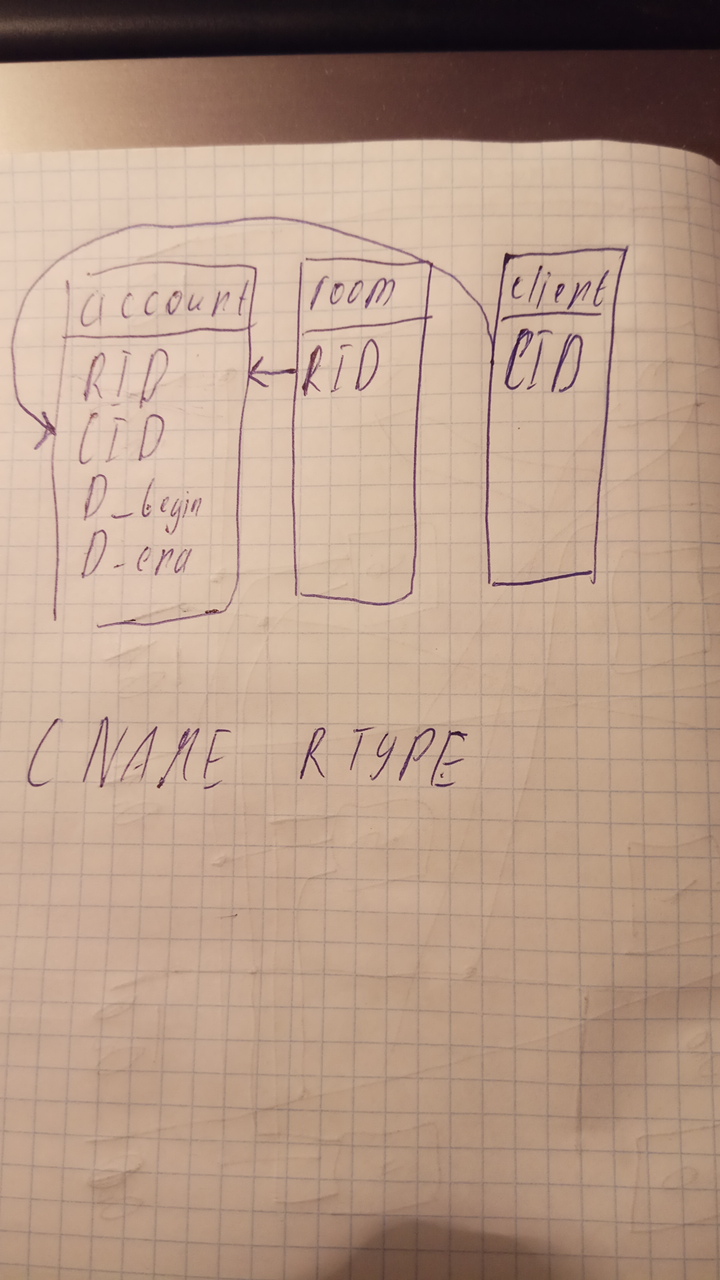 account
RID
CID
D_begin
D_end
room
RID
client
CID
CNAME RTYPE